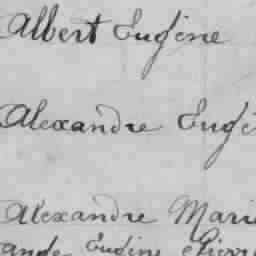 Albert Eugène
Alexandre Eugè
Alexandre Marie
ande Eugène Pierre